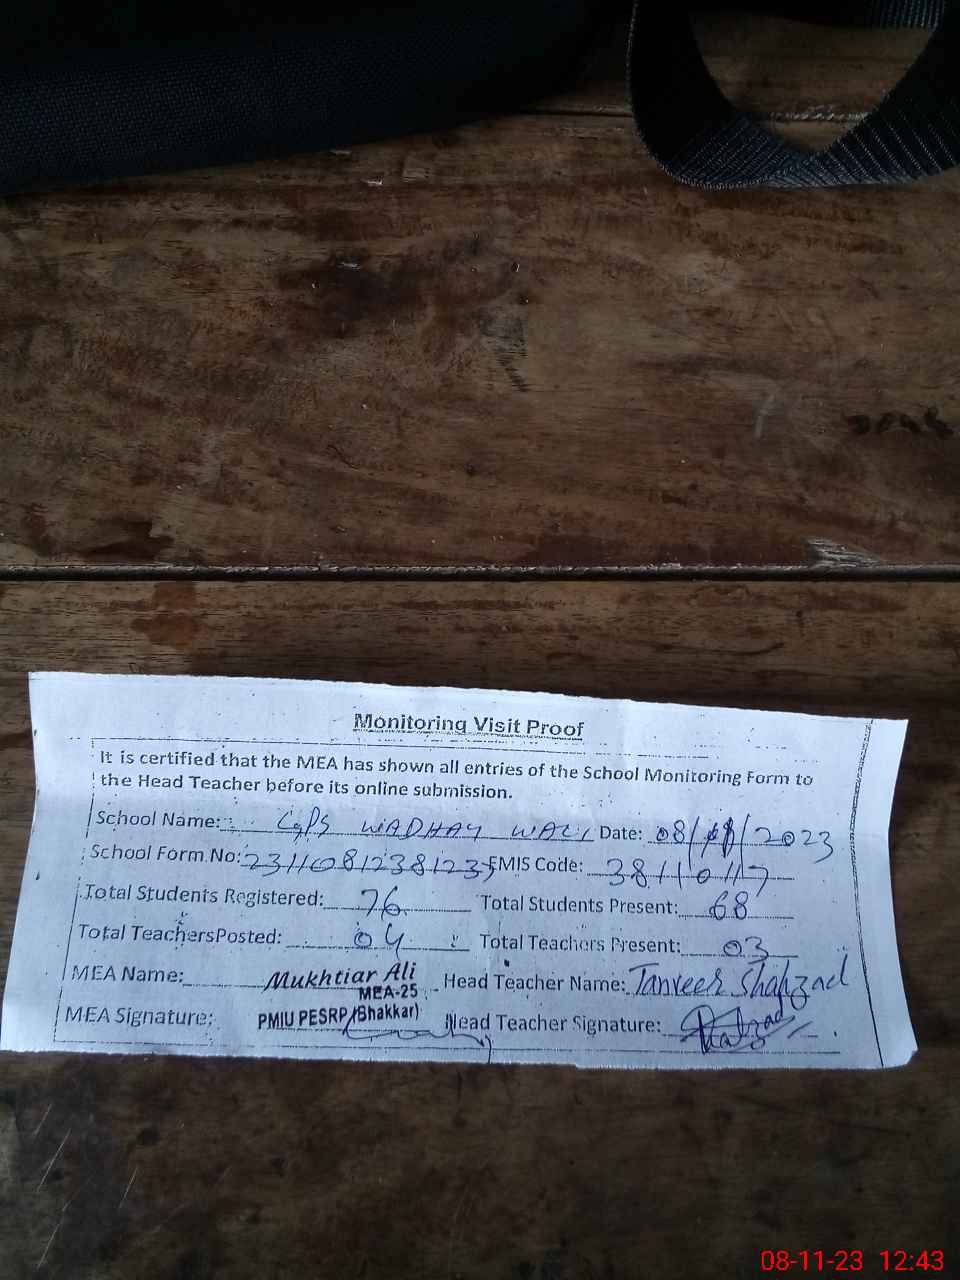 Monitoring Visit Proof
It is certified that the MEA has shown all entries of the School Monitoring Form to
the Head Teacher before its online submission.
School Name: GPS WADHAY WALI Date: 08/11/2023
School Form No: 2311081238123 EMIS Code: 38110117
Total Students Registered: 76 Total Students Present: 68
Total TeachersPosted: 04 Total Teachers Present: 03
MEA Name: Mukhtiar Ali Head Teacher Name: Tanveer Shahzad
MEA-25
MEA Signature: PMIU PESRP (Bhakkar) Head Teacher Signature:
08-11-23 12:43